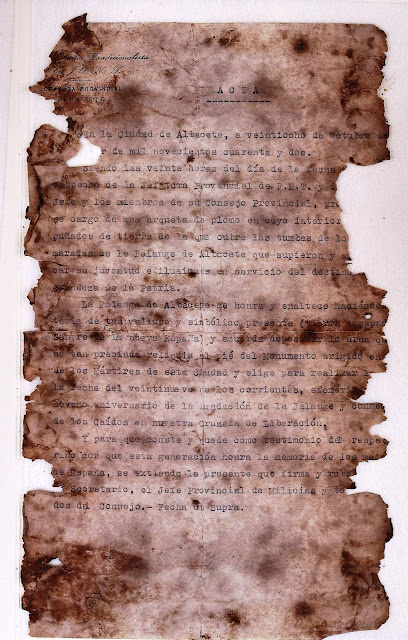 Tradicionalista
A C T A
En la Ciudad de Albacete, a veintiocho de Octubre de
de mil novecientos cuarenta y dos.
Siendo las veinte horas del día de la fecha
de la Jefatura Provincial de F.E.T. y
Jefe y los miembros de su Consejo Provincial,
cargo de una arqueta de plomo en cuyo interior
puñados de tierra de la que cubre las tumbas de lo
maradas de la Falange de Albacete que supieron y
su juventud e ilusiones en servicio del destino
de la Patria.
La Falange de Albacete se honra y enaltece haciéndo
tan valioso y simbólico presente
la nueva España) y acuerda depositar la urna que
tan preciada reliquia al pié del Monumento erigido en
de los Mártires de esta Ciudad y elige para realizar
la fecha del veintinueve de los corrientes,
noveno aniversario de la fundación de la Falange y
de los Caídos en nuestra Cruzada de Liberación.
Y para que conste y quede como testimonio del
con que esta generación honra la memoria de los
de España, se extiende la presente que firma y
Secretario, el Jefe Provincial de Milicias y to
dos del Consejo.- Fecha Ut Supra.